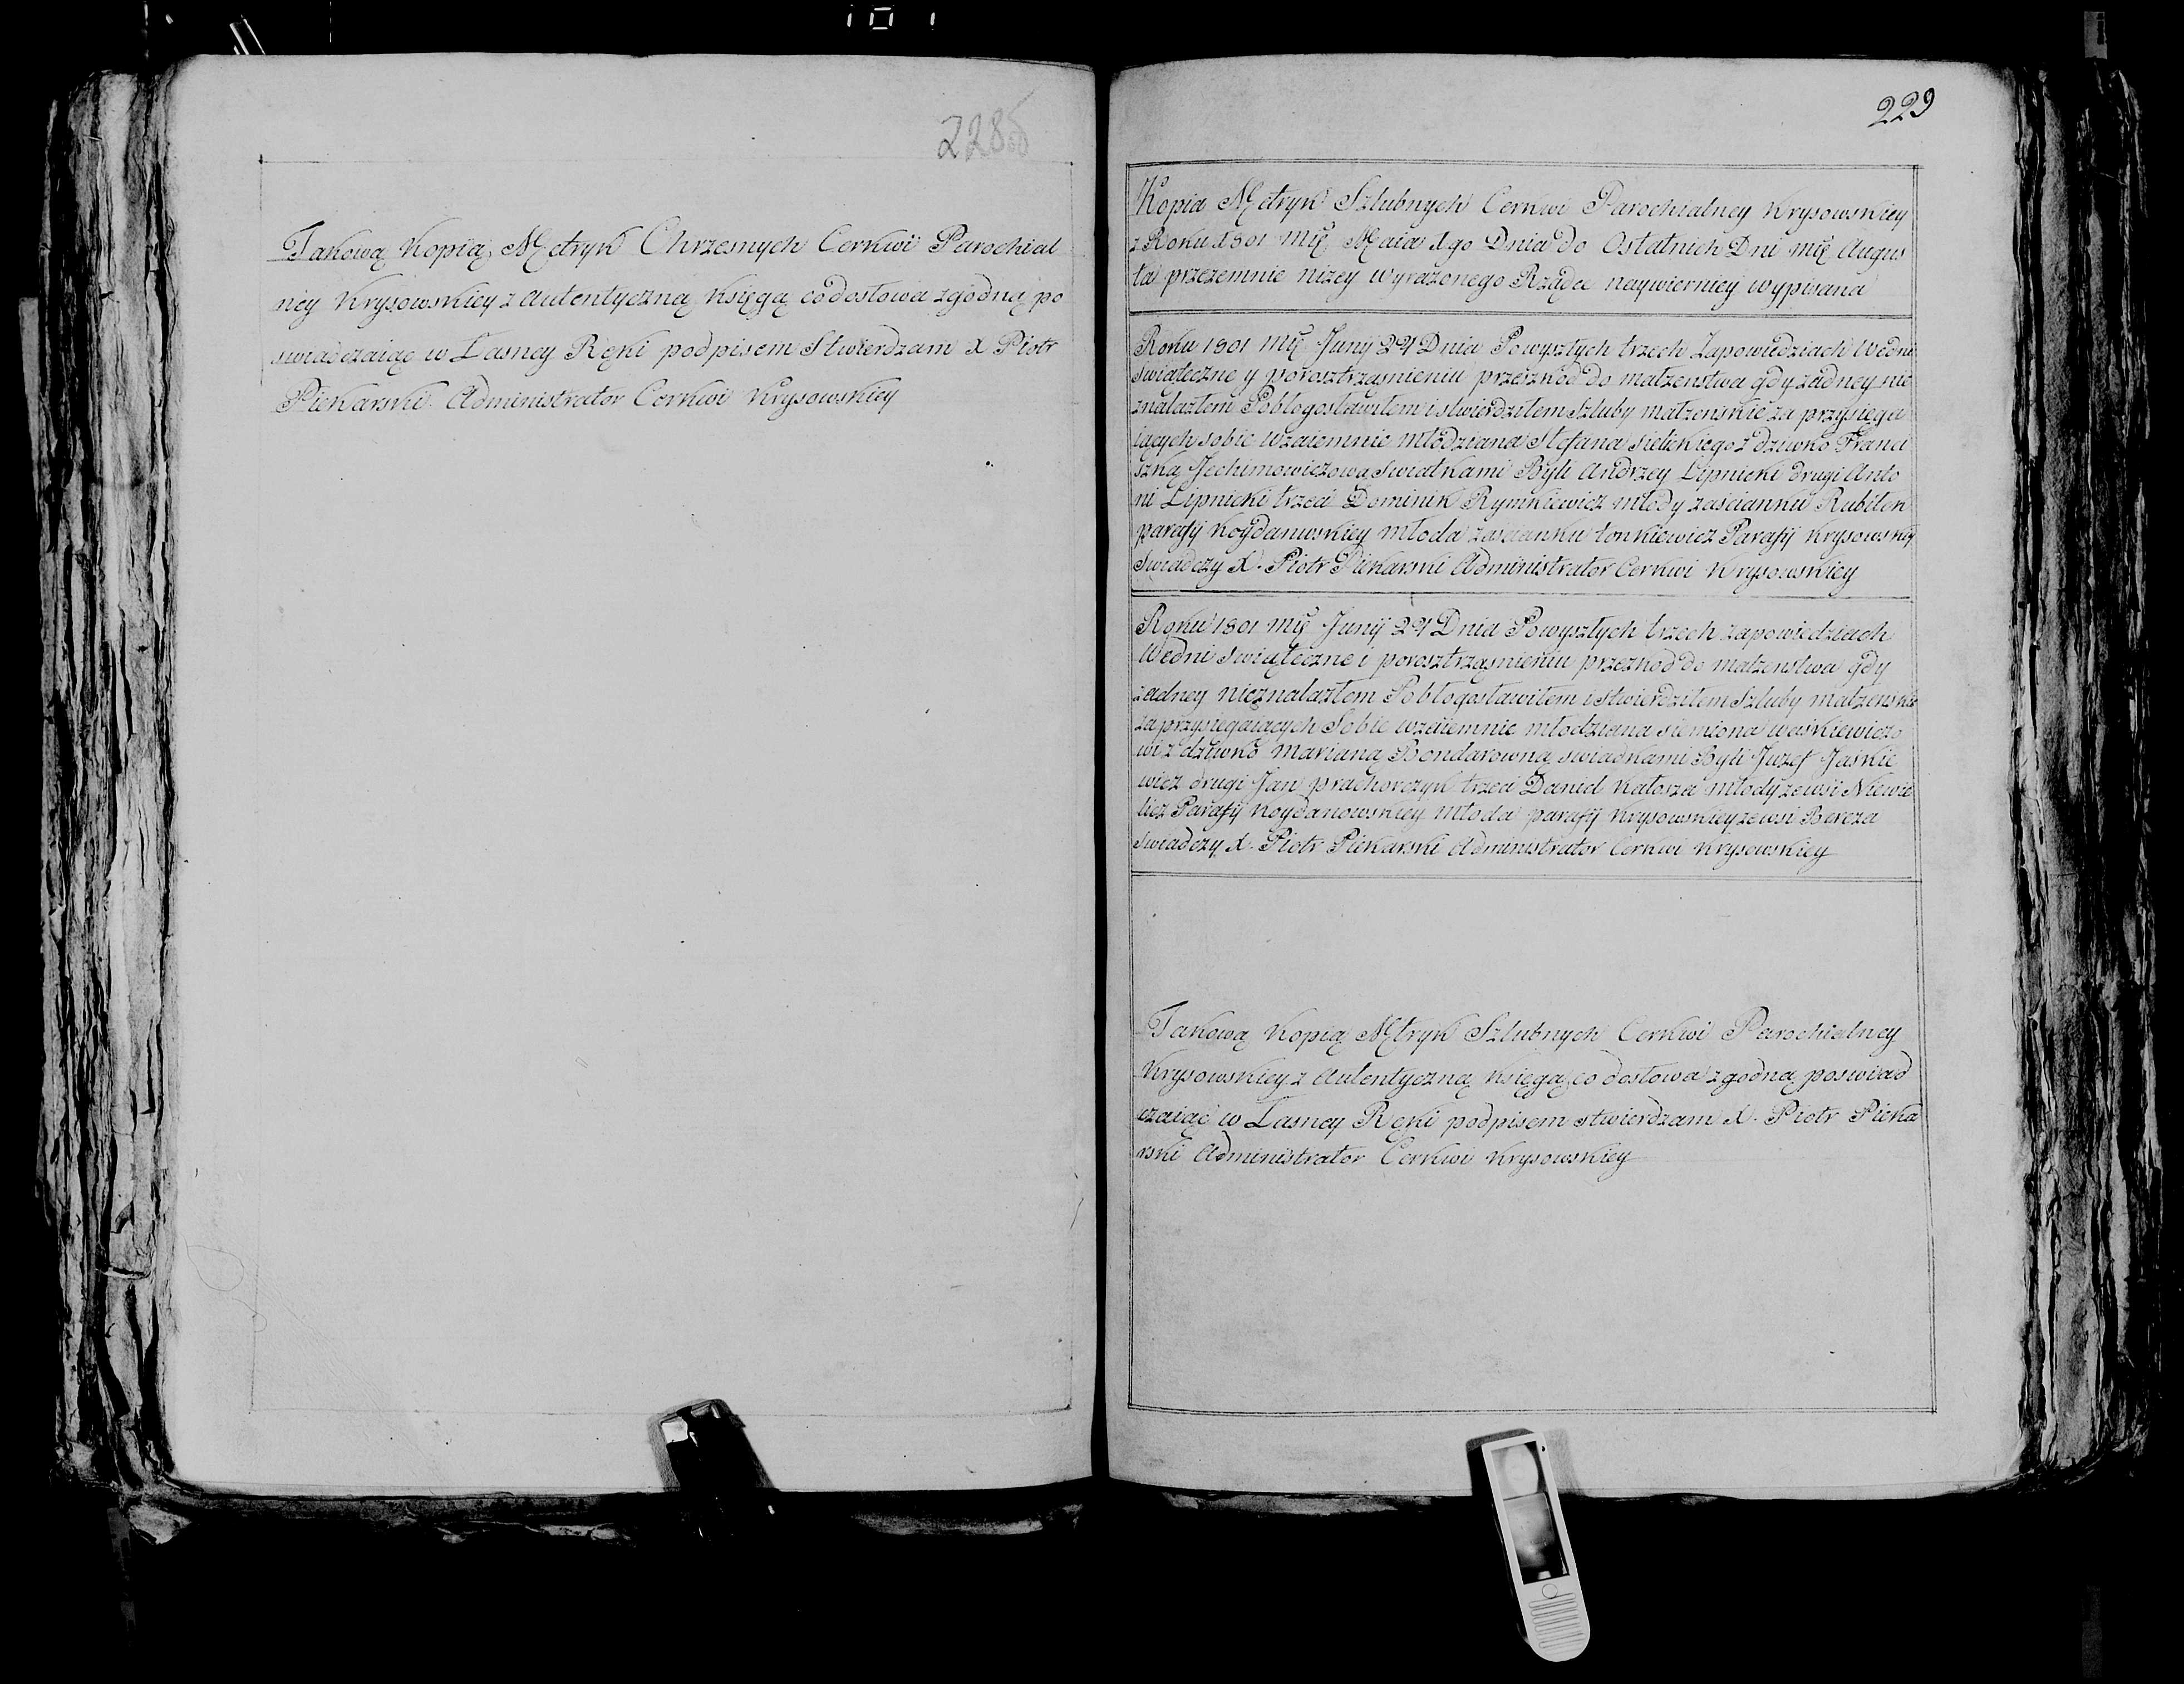 228
Takową Kopią Metryk Chrzesnych Cerkwi Parochial
ney Krysowskiey z autentyczną księgą co dostowa zgodną po
swiadczaiąc w Łasney Ręki podpisem Stwierdzam X Piotr
Piekarski Administrator Cerkwi Krysowskiey
229
Kopia Metryk Szlubnych Cerkwi Parochialney Krysowskiey
z Roku 1801 Mię Maia 1go Dnia do Ostatnich Dni Mię Augus
ta przezemnie niżey wyrażonego Rządce naywierniey wypisana
Roku 1801 Mię Junij 24 Dnia Powyszłych trzech Zapowiedziach Wedni
Swiąteczne y porosztrząsnieniu przeszkod do małzenstwa gdy żadney nie
znalazłem Pobłogosławiłem i stwierdziłem Szluby małzenskie za przysięga
iących sobie wzaiemnie młodziana Stefana Sielickiego z dziwko Franci
szną Jechimowiczową Swiatkami Byli Andrzey Lipnicki drugi Anto
ni Lipnicki trzeci Dominik Rymkiewicz młody zascianku Rubilek
parafij Koydanwskiey młoda zascianku Łonkiewicz Parafij Krysowskiey
Swiadczy X. Piotr Piekarski Administrator Cerkwi Krysowskiey
Roku 1801 Mię Junij 24 Dnia Powyszłych trzech zapowiedziach
Wedni Swiąteczne i porosztrząsnieniu przezkod do małzenstwa gdy
żadney nieznalazłem Pobłogosławiłem i stwierdziłem Szluby małzenskie
za przysięgaiących Sobie wzaiemnie młodziana Siemiona Waskiewiczo
wi z dziwko Marianą Bondarowną swiadkami Byli Juzef Jaskie
wicz drugi Jan Prachorczyk trzeci Daniel Kałosza młody zewsi Niewie
licz Parafij Koydanowskiey młoda parafij Krysowskiey zewsi Bereza
Swiadczy X. Piotr Piekarski Administrator Cerkwi Krysowskiey
Takową Kopią Mtryk Szlubnych Cerkwi Parochialney
Krysowskiey z Autentyczną księgą co dostowa zgodną poswiad
czaiąc w Łasney Ręki podpisem stwierdzam X. Piotr Pieka
rski Administrator Cerkwi Krysowskiey